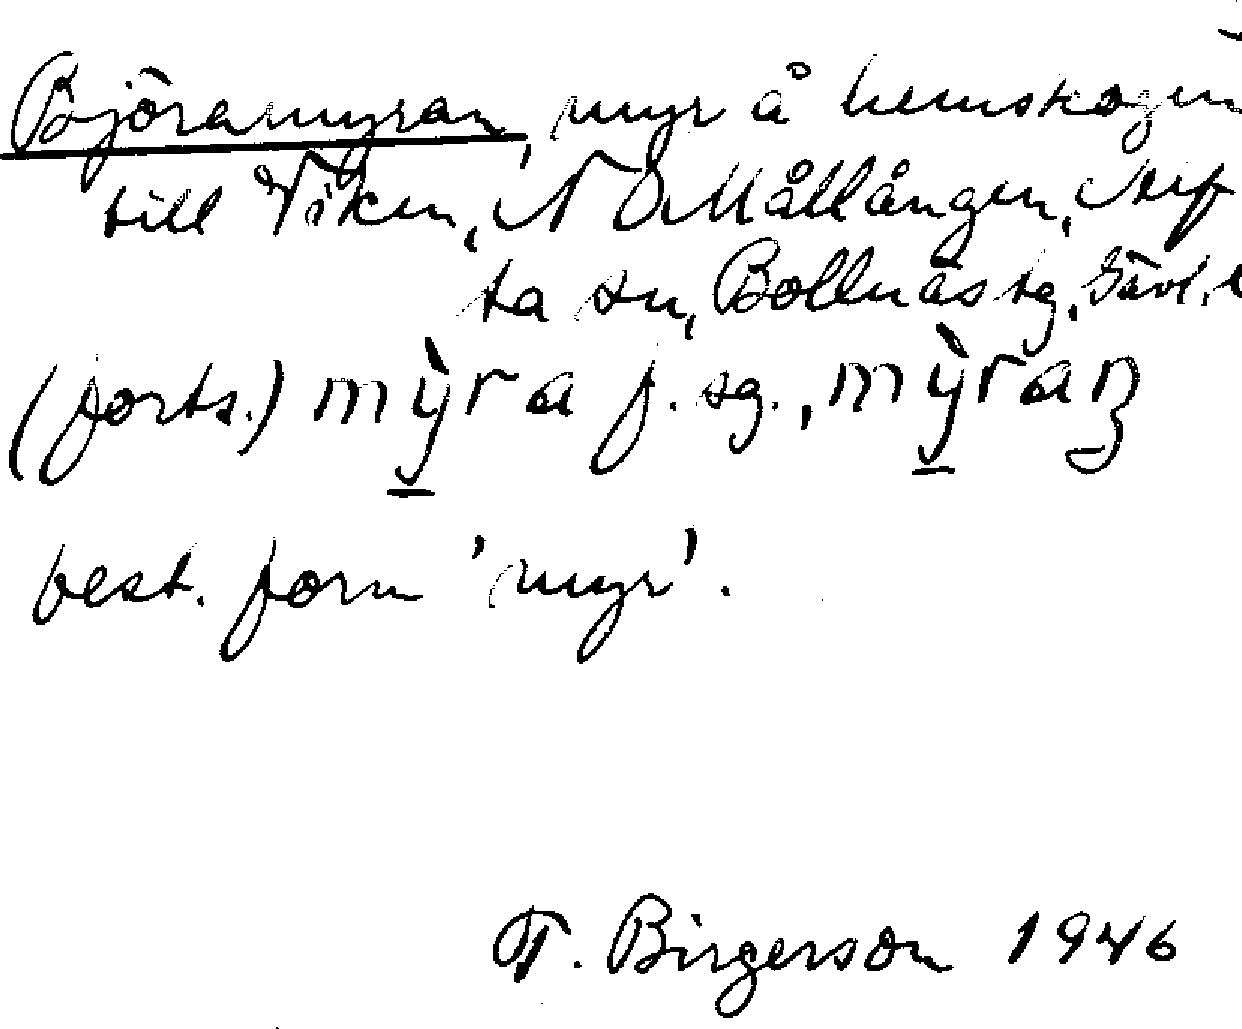 Björamyran, myr å hemskogen
till Viken, NO Mållången, Arf
ta sn, Bollnäs tg, Gävl. l
(forts.) mỳ̱ra f. sg., mỳ̱raꞑ
best. form 'myr'.
T. Birgerson 1946